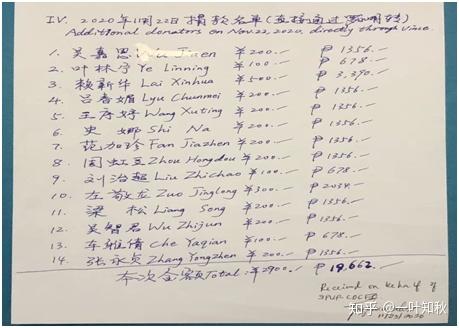 IV. 2020年11月22日捐款名单(直接通过 转)
Additional donators on Nov.22,2020, directly through Vince.
1. 吴嘉思 ¥200.— ₱1356.—
2. 叶林宁 Ye Linning ¥100.— ₱678.—
3. 赖新华 Lai Xinhua ¥500.— ₱3,390.—
4. 吕春媚 Lyu Chunmei ¥200.— ₱1356.—
5. 王序婷 Wang Xuting ¥200.— ₱1356.—
6. 史娜 Shi Na ¥200.— ₱1356.—
7. 范加珍 Fan Jiazhen ¥200.— ₱1356.—
8. 周虹豆 Zhou Hongdou ¥200.— ₱1356.—
9. 刘治超 Liu Zhichao ¥100.— ₱678.—
10. 左敬龙 Zuo Jinglong ¥300.— ₱2034.—
11. 梁松 Liang Song ¥200.— ₱1356.—
12. 吴智君 Wu Zhijun ¥200.— ₱1356.—
13. 车雅倩 Che Yaqian ¥100.— ₱678.—
14. 张永贞 Zhang Yongzhen ¥200.— ₱1356.—
本次金额Total: ¥2900.— ₱19,662.—
Received on behalf of
SPUP-CDCES
知乎 @一叶知秋
11/23/2020